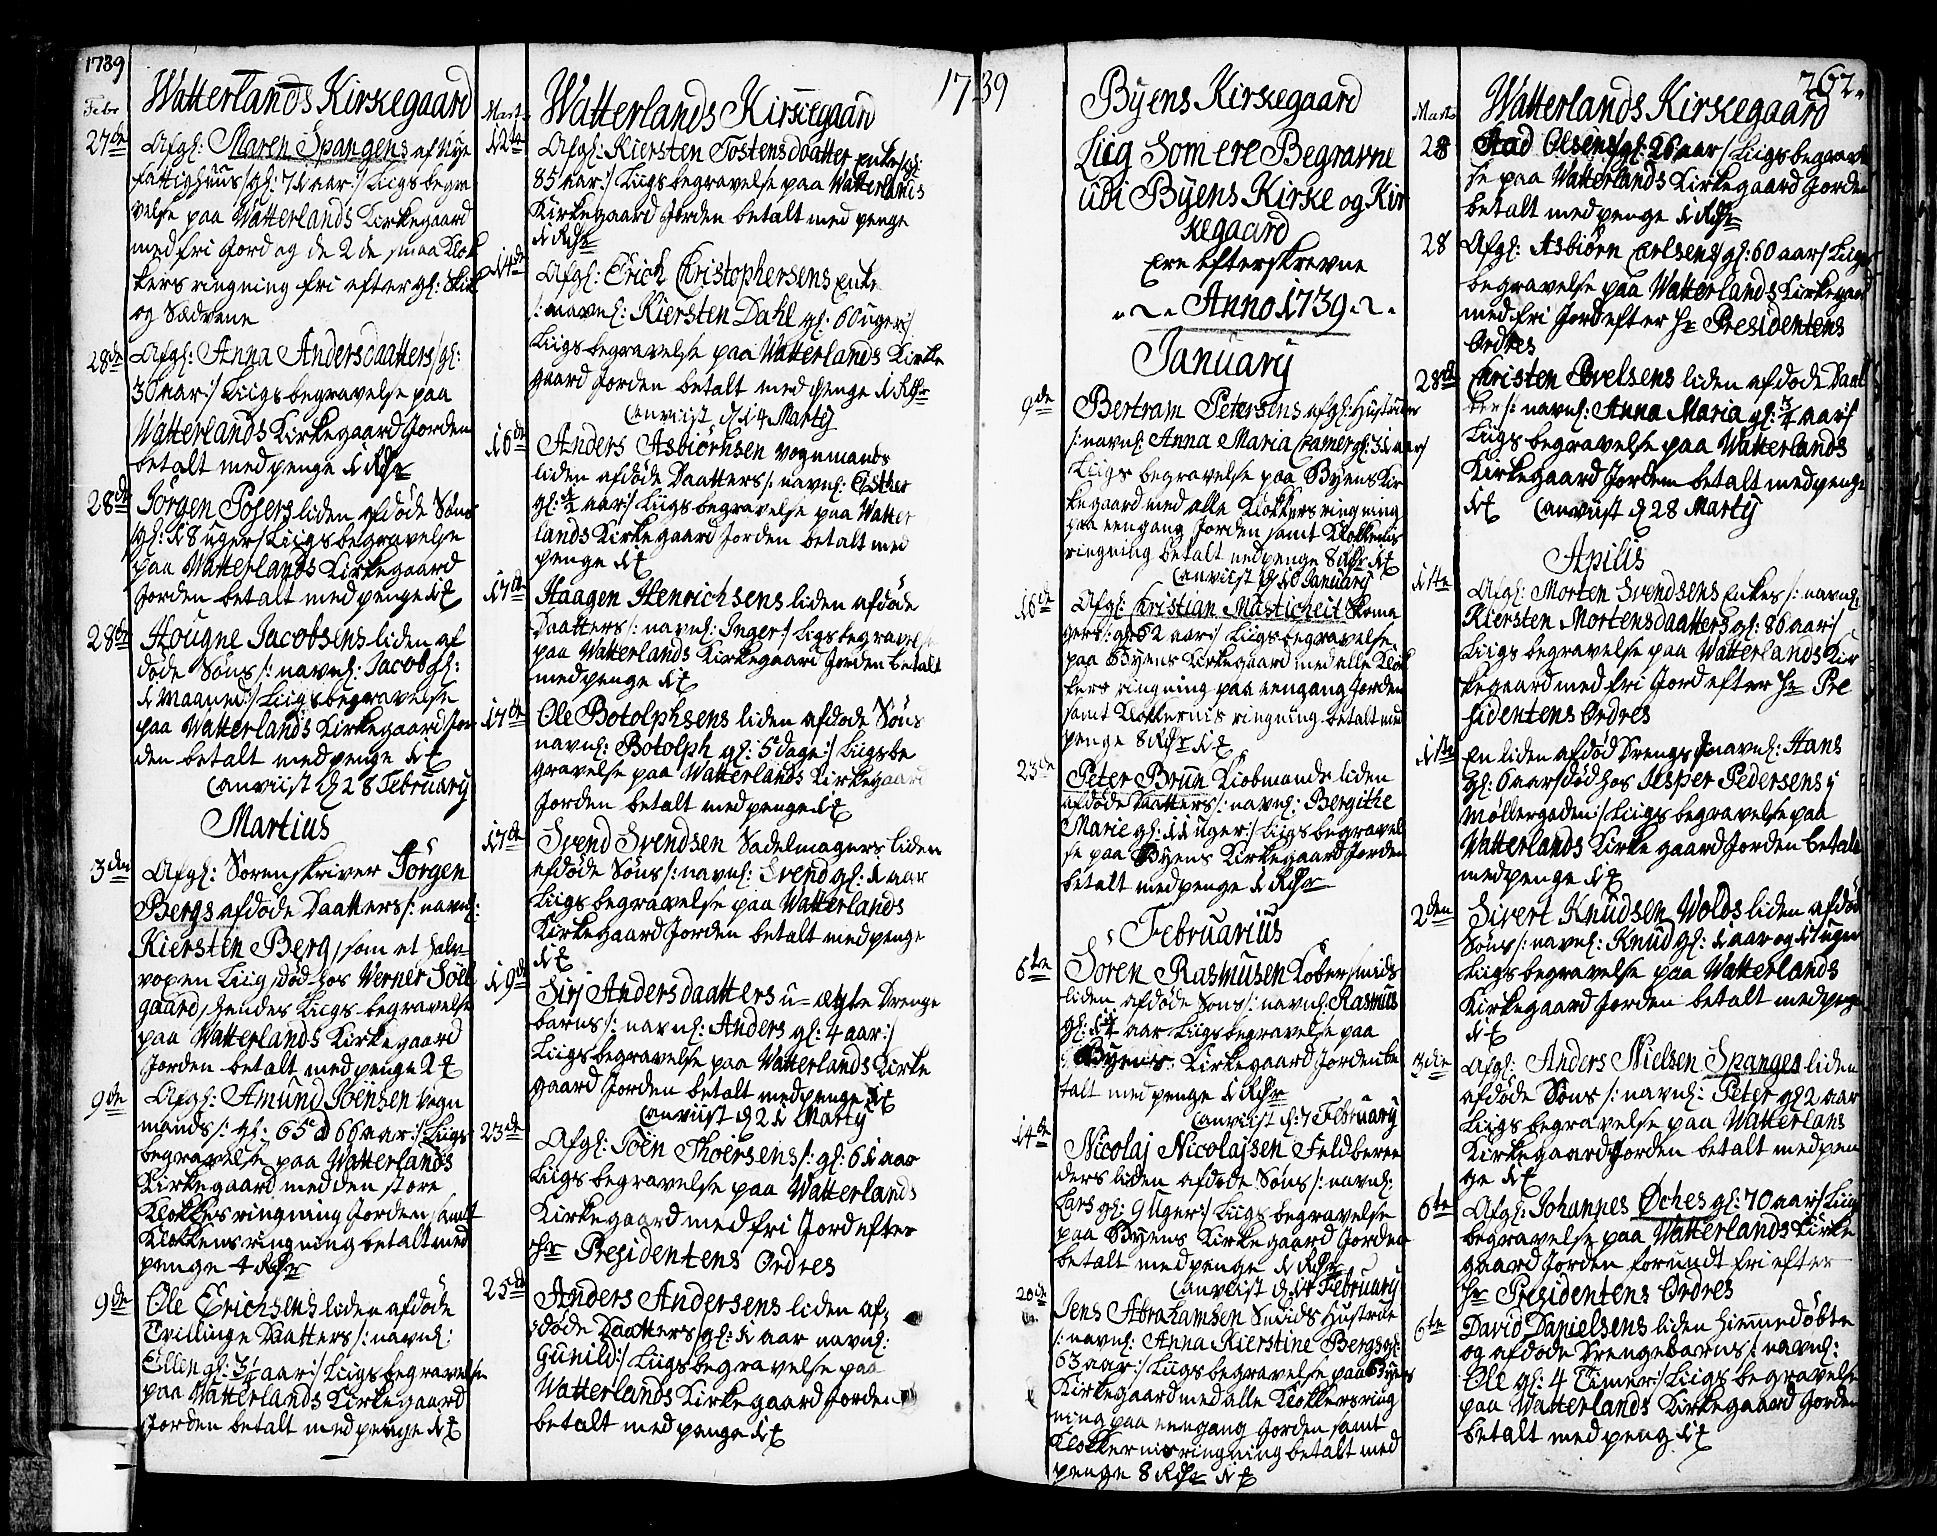 1739
Febr
Watterlands Kirkegaard
27de
Afgl: Maren Spangens af Nye
fattighuus /gl: 71 aar:/ Liigs begra
velse paa Watterlands Kirkegaard
med fri Jord og de 2de smaa Klok
kers ringning fri efter gl: Skik
og Sædvene
28de
Afgl: Anna Andersdaatters /gl:
30 aar:/ Liigs begravelse paa
Watterlands Kirkegaard Jorden
betalt med penge 1 Rdr
28de
Jörgen Posers liden afdöde Söns
gl: 18 uger/ Liigs begravelse
paa Watterlands Kirkegaard
Jorden betalt med penge 1 ?
28de
Hougne Jacobsens liden af
döde Söns /: navnl: Jacob gl:
1 Maaned:/ Liigs begravelse
paa Watterlands Kirkegaard Jor
den betalt med penge
Canviist d 28 February
Martius
3den
Afgl: Sorenskriver Jörgen
Bergs afdöde Daatters /: navnl:
Kiersten Berg, som et halv
voxen Liig, död hos Verner Söel
gaard, hendes Liigs begravelse
paa Watterlands Kirkegaard
Jorden betalt med penge 2
9de
Afgl: Amund Joensen vogn
mands /: gl: 65 a 66 aar:/ Liigs
begravelse paa Watterlands
Kirkegaard med den store
Klokkes ringning Jorden samt
Klokkens ringning betalt med
penge 4 Rdr
9de
Ole Erichsens liden afdöde
Tvillinge Daatters /: navnl:
Ellen gl: 3/4 aar:/ Liigs begravelse
paa Watterlands Kirkegaard
Jorden betalt med penge
Mart
1739
Watterlands Kirkegaard
12te
Afgl: Kiersten Tostensdaatter Enke /gl:
85 aar:/ Liigs begravelse paa Watterlands
Kirkegaard Jorden betalt med penge
1 Rdr
14de
Afgl: Erich Christophersens Enke
/: navnl: Kiersten Dahl gl: 60 uger/
Liigs begravelse paa Watterlands Kirke
gaard Jorden betalt med penge 1 Rdr
Canviist d 14 Marty
16de
Anders Asbiörnsen vognmands
liden afdöde Daatters /: navnl: Esther
gl: aar:/ Liigs begravelse paa Watter
lands Kirkegaard Jorden betalt med
penge
17de
Haagen Henrichsens liden afdöde
Daatters /: navnl: Inger:/ Ligs begravelse
paa Watterlands Kirkegaard Jorden betalt
med penge
17de
Ole Botolphsens liden afdöde Söns
navnl: Botolph gl: 5 dage:/ Liigs be
gravelse paa Watterlands Kirkegaard
Jorden betalt med penge
17de
Svend Svendsen Sadelmagers liden
afdöde Söns /: navnl: Svend gl: 1 aar
Liigs begravelse paa Watterlands
Kirkegaard Jorden betalt med penge
19de
Sirj Andersdaatters u-ægte Drenge
barns /: navnl: Anders gl: 4 aar:/
Liigs begravelse paa Watterlands Kirke
gaard Jorden betalt med penge
Canviist d 21 Marty
23de
Afgl: Joen Thoersens /: gl: 61 aar
Liigs begravelse paa Watterlands
Kirkegaard med fri Jord efter
Hr Presidentens Ordres
25de
Anders Andersens liden af
döde Daatters /gl: 1 aar navnl:
Gunild:/ Liigs begravelse paa
Watterlands Kirkegaard Jorden
betalt med penge
Byens Kirkegaard
Liig Som ere Begravne
udi Byens Kirke og Kir
kegaard
Ere Efterskrevne
Anno 1739
January
9de
Bertram Petersens afgl: Hustrues
/: navnl: Anna Maria Cramer gl: 31 aar/
Liigs begravelse paa Byens Kir
kegaard med alle Klokkers ringning
paa eengang Jorden samt Klokkernis
ringning betalt med penge 8 Rdr
Canviist d 10 January
16de
Afgl: Christian Masticheit Skoma
gers: gl: 62 aar:/ Liigs begravelse
paa Byens Kirkegaard med alle Klok
kers ringning paa eengang Jorden
samt Klokkernis ringning betalt med
penge 8 Rdr
23de
Peter Brun Kiobmands liden
afdöde Daatters /: navnl: Bergithe
Marie gl: 11 uger:/ Liigs begravel
se paa Byens Kirkegaard Jorden
betalt med penge 1 Rdr
Februarius
6te
Sören Rasmusen Kobersmids
liden afdöde Söns /: navnl: Rasmus
gl: aar Liigs begravelse paa
Byens Kirkegaard Jorden be
talt med penge 1 Rdr
Canviist d: 7 February
14de
Nicolaj Nicolajsen Feldberee
ders liden afdöde Söns /: navnl:
Lars gl: 9 Uger:/ Liigs begravelse
paa Byens Kirkegaard Jorden
betalt med penge 1 Rdr
Canviist d 14 February
20de
Jens Abrahamsen Smids Hustrue
/: navnl: Anna Kierstine Bergs gl:
63 aar:/ Liigs begravelse paa Byens
Kirkegaard med alle Klokkers ring
ning paa eengang Jorden samt
Klokkernis ringning betalt med
penge 8 Rdr
262.
Mart
Watterlands Kirkegaard
28
Aad Olsens /gl: 26 aar/ Liigs begravel
se paa Watterlands Kirkegaard Jorden
betalt med penge 1 Rdr
28
Afgl: Asbiörn Carlsens /gl: 60 aar/ Liigs
begravelse paa Watterlands Kirkegaard
med fri Jord efter Hr Presidentens
Ordres
28de
Christen Povelsens liden afdöde Daat
ters /: navnl: Anna Maria gl: 3/4 aar/
Liigs begravelse paa Watterlands
Kirkegaard Jorden betalt med penge
Canviist d 28 Marty
Aprilis
1ste
Afgl: Morten Svendsens Enkes /: navnl:
Kiersten Mortensdaatters gl: 86 aar/
Liigs begravelse paa Watterlands Kir
kegaard med fri Jord efter Hr Pre
sidentens Ordres
1ste
En liden afdöd Drengs /navnl: Hans
gl: 6 aar/ död hos Jesper Pedersens i
Möllergaden:/ Liigs begravelse paa
Watterlands Kirkegaard Jorden betalt
med penge
2den
Sivert Knudsen Wolds liden afdöde
Söns /: navnl: Knud gl: 1 aar og 17 uger
Liigs begravelse paa Watterlands
Kirkegaard Jorden betalt med penge
3die
Afgl: Anders Nielsen Spanges liden
afdöde Söns /: navnl: Peter gl 2 aar
Liigs begravelse paa Watterlans
Kirkegaard Jorden betalt med pen
ge
6te
Afgl: Johannes Öches gl: 70 aar/ Liigs
begravelse paa Watterlands Kirke
gaard Jorden forundt fri efter
Hr Presidentens Ordres
6te
David Danielsens liden hiemmedöbte
og afdöde Drengebarns /: navnl:
Ole gl: 4 Timer:/ Liigs begravelse
paa Watterlands Kirkegaard Jorden
betalt med peng